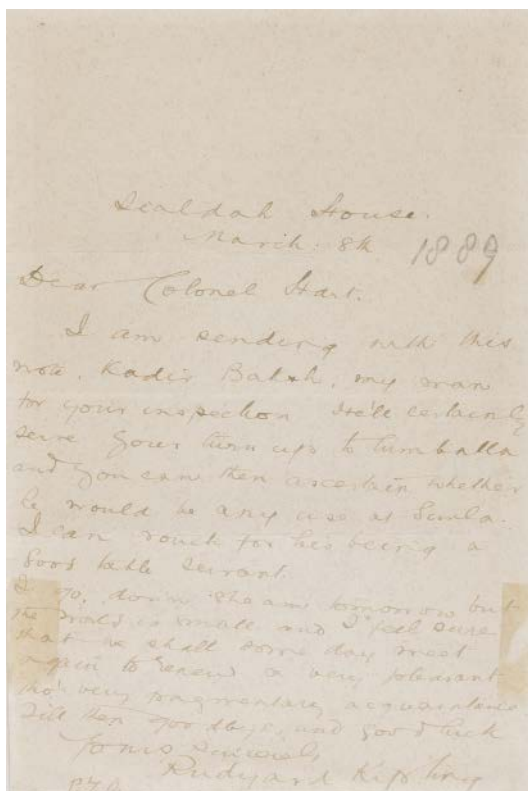 Sealdah House.
March. 8th 1889
Dear Colonel Hart.
I am sending with this
note, Kadir Baksh, my man
for your inspection He'll certainly
serve your turn up to Umballa
and you can then ascertain whether
he would be any use at Simla.
I can vouch for his being a
Good table servant.
I go, down stream tomorrow but
the world is small and I feel sure
that we shall some day meet
again to renew a very pleasant
tho' very fragmentary acquaintance
Till then good bye, and good luck
Yours sincerely
Rudyard Kipling